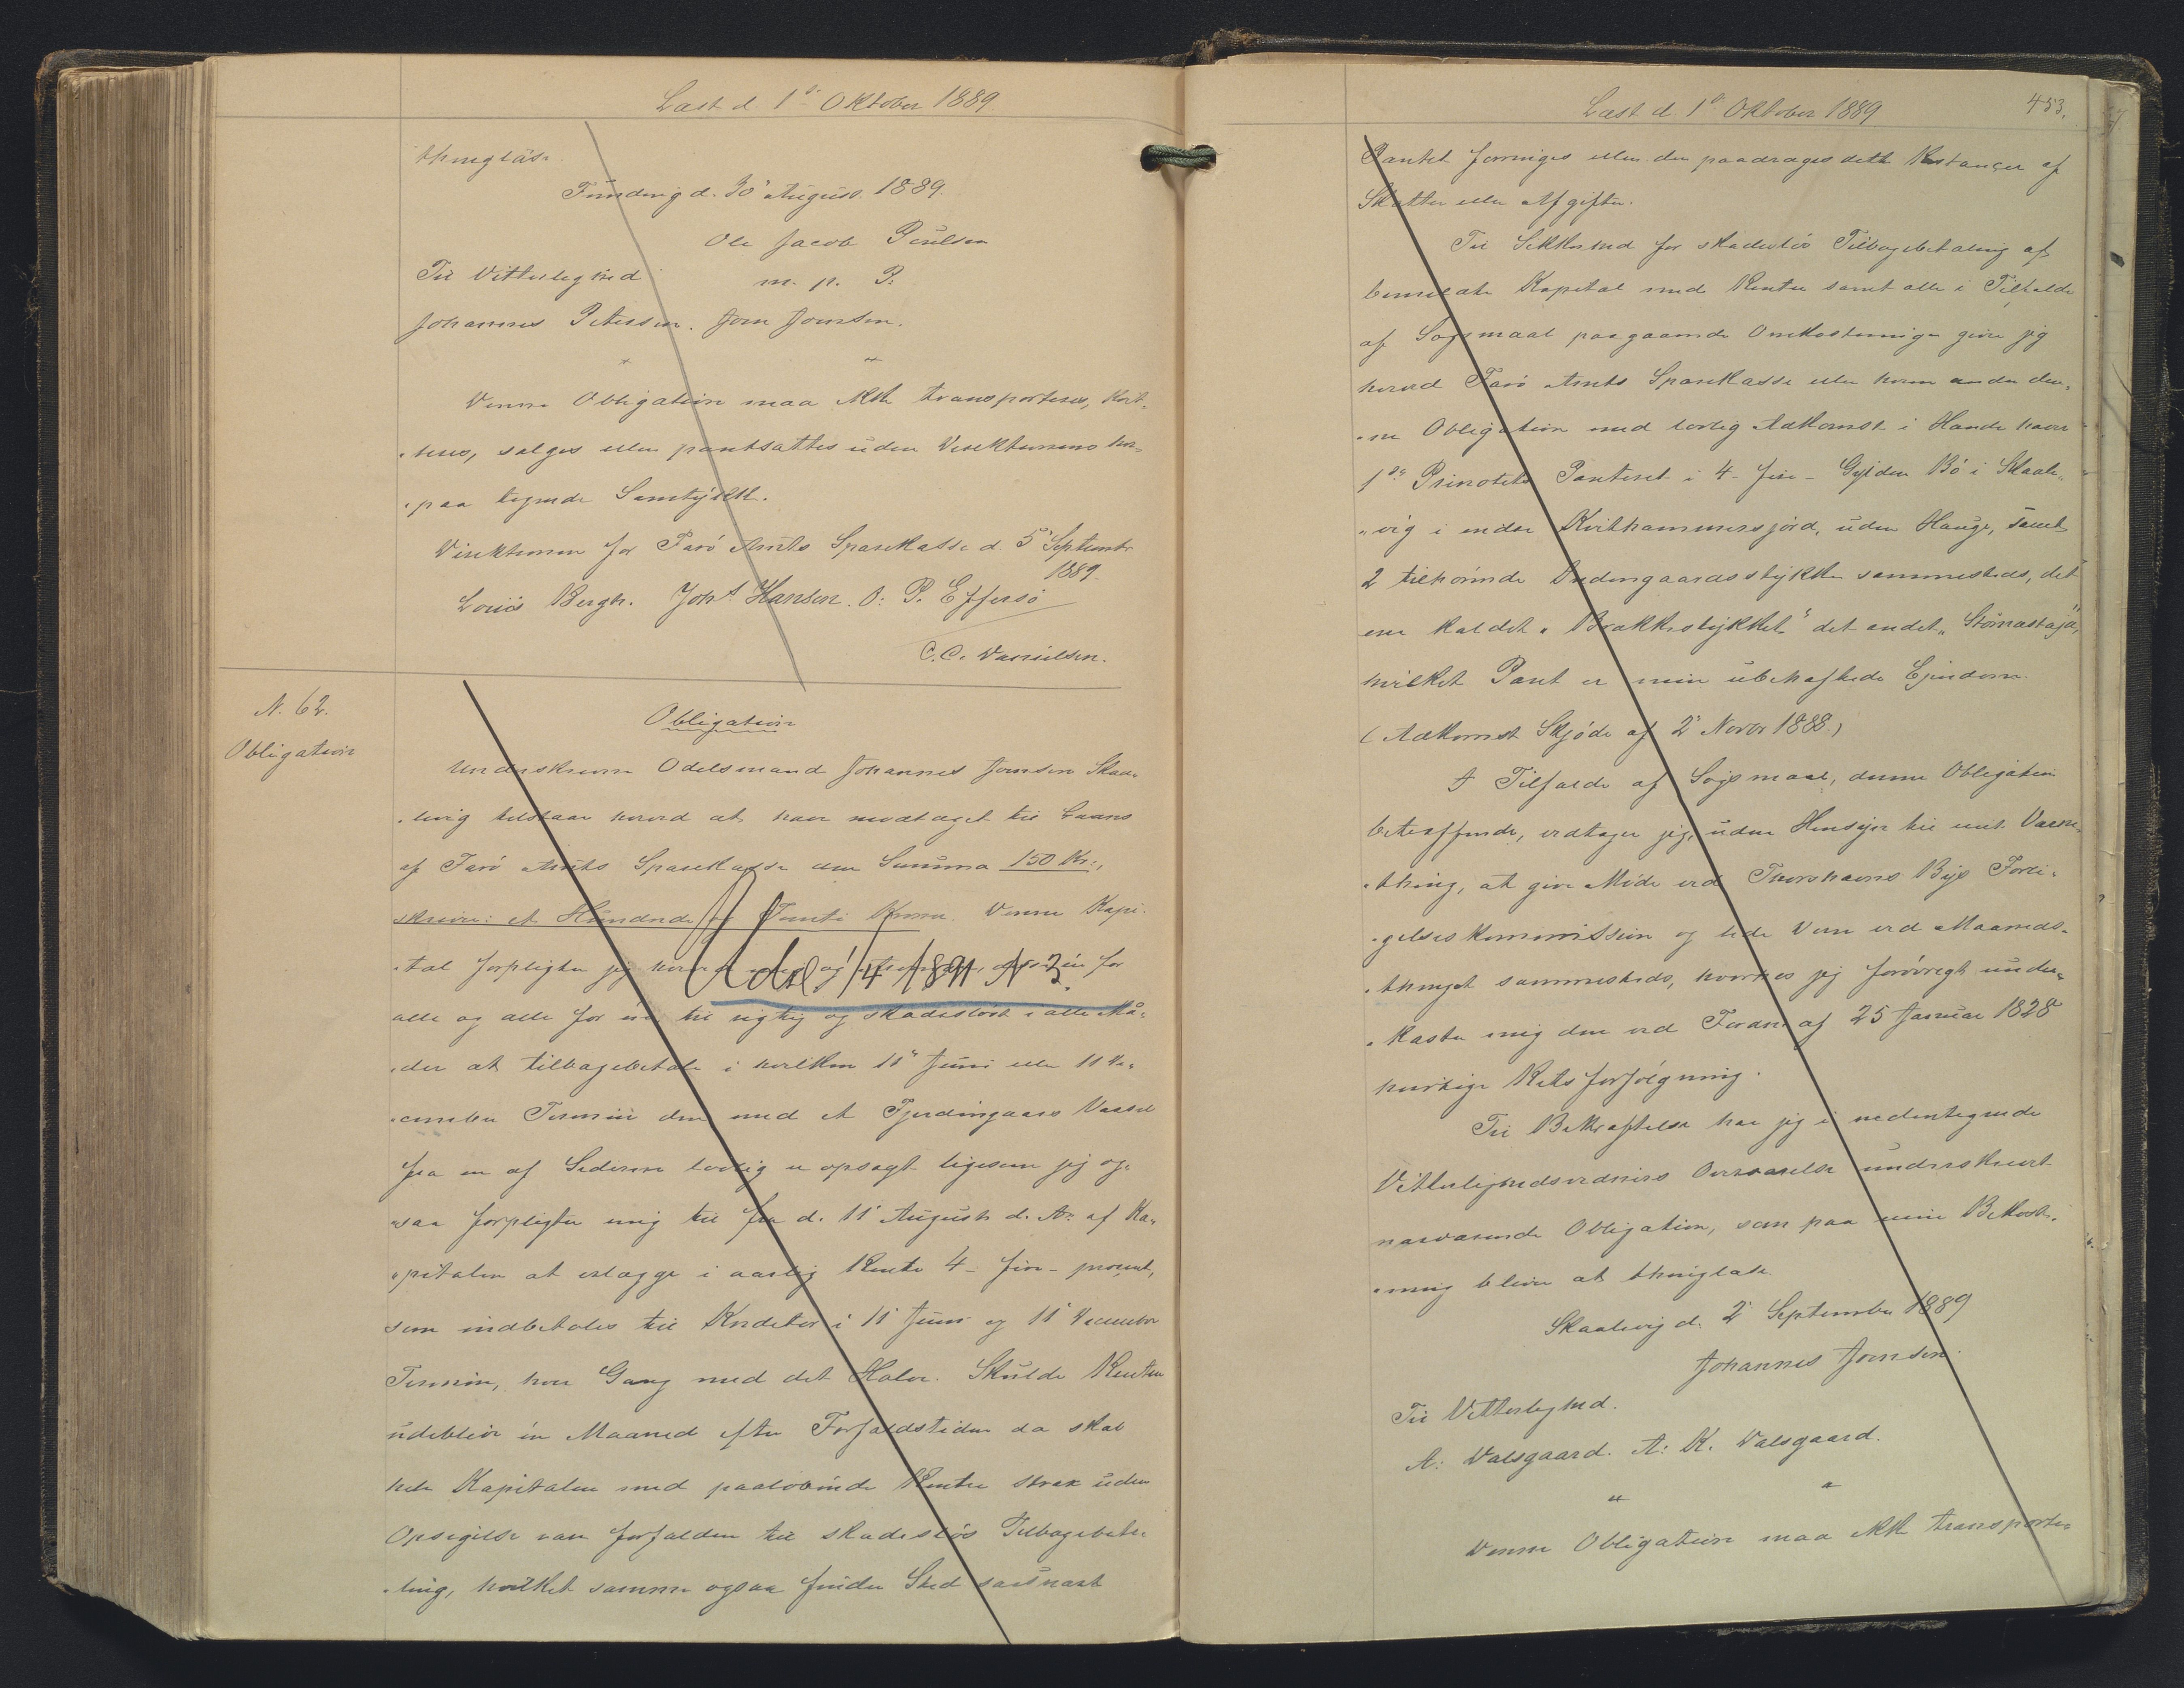 Læst d. 1ᵗᵉ Oktober 1889
thinglæse.
Funding d. 30ᵗᵉ August 1889.
Ole Jacob Poulsen
Til Vitterlighed m. p. P.
Johannes Petersen. Joen Joensen.
Denne Obligation maa ikke transporteres, kvit-
teres, sælges eller pantsættes uden Direktionens her-
paa tegnede Samtykke.
Direktionen for Færø Amts Sparekasse d. 5ᵗᵉ Septembr
1889.
Louis Bergh. Johˢ Hansen. O: P. Effersö
C. C. Danielsen.
N. 62.
Obligation
Obligation
Underskrevne Odelsmand Johannes Joensen Skaa-
levig tilstaar herved at have modtaget til Laans
af Færö Amts Sparekasse den Summa 150 Kr.,
skriver: et Hundrede og Femti Kroner. Denne Kapi-
tal forpligter jeg herved og for
Udsl 1/4 1891 N 3.
alle og alle for én til rigtig og skadeslöst i alle Må-
der at tilbagebetale i hvilken 11ᵗᵉ Juni eller 11 De-
cember Termin den med et Fjerdingaars Varsel
fra en af Siderne lovlig er opsagt ligesom jeg og-
saa forpligter mig til fra d. 11ᵗᵉ August d. A. af Ka-
pitalen at erlægge i aarlig Rente 4 - fire - procent,
som indbetales til Kreditor i 11ᵗᵉ Juni og 11ᵗᵉ December
Termin, hver Gang med det Halve. Skulde Renten
udeblive én Maaned efter Forfaldstiden da skal
hele Kapitalen med paalöbende Renter strax uden
Opsigelse være forfalden til skadeslös Tilbagebeta-
ling, hvilket samme ogsaa finder Sted saasnart
Læst d. 1ᵗᵉ Oktober 1889
453.
Pantet forringes eller der paadrages dette Restancer af
Skatter eller Afgifter.
Til Sikkerhed for skadeslös Tilbagebetaling af
bemeldte Kapital med Renter samt alle i Tilfælde
af Sögsmaal paagaaende Omkostninger giver jeg
herved Færö Amts Sparekasse eller hvem anden den-
ne Obligation med lovlig Adkomst i Hænde haver
1ˢᵗᵉ Prioritets Panteret i 4 - fire - Gylden Bö i Skaale-
vig i nedre Kvithammersjord, uden Hauge, samt
2 tilhörende Indengaardsstykker sammesteds, det
ene kaldet "Brækkestykket" det andet "Stömastöjá",
hvilket Pant er min ubehæftede Ejendom.
(Adkomst Skjöde af 2ᵗᵉ Novbr 1888.)
I Tilfælde af Sögsmaal, denne Obligation
betræffende, vedtager jeg, uden Hensyn til mit Værne-
thing, at give Möde ved Thorshavns Byes Forli-
gelseskommission og lide Dom ved Maaneds-
thinget sammesteds, hvorhos jeg forövrigt under-
kaster mig den ved Forordn. af 25 Januar 1828
hurtige Retsforfölgning.
Til Bekræftelse har jeg i nedentegnede
Vitterlighedsvidners Overværelse underskrevet
nærværende Obligation, som paa min Bekost-
ning bliver at thinglæse.
Skaalevig d. 2ᵗᵉ September 1889
Johannes Joensen.
Til Vitterlighed.
A. Dalsgaard. A. K. Dalsgaard.
Denne Obligation maa ikke transporte-